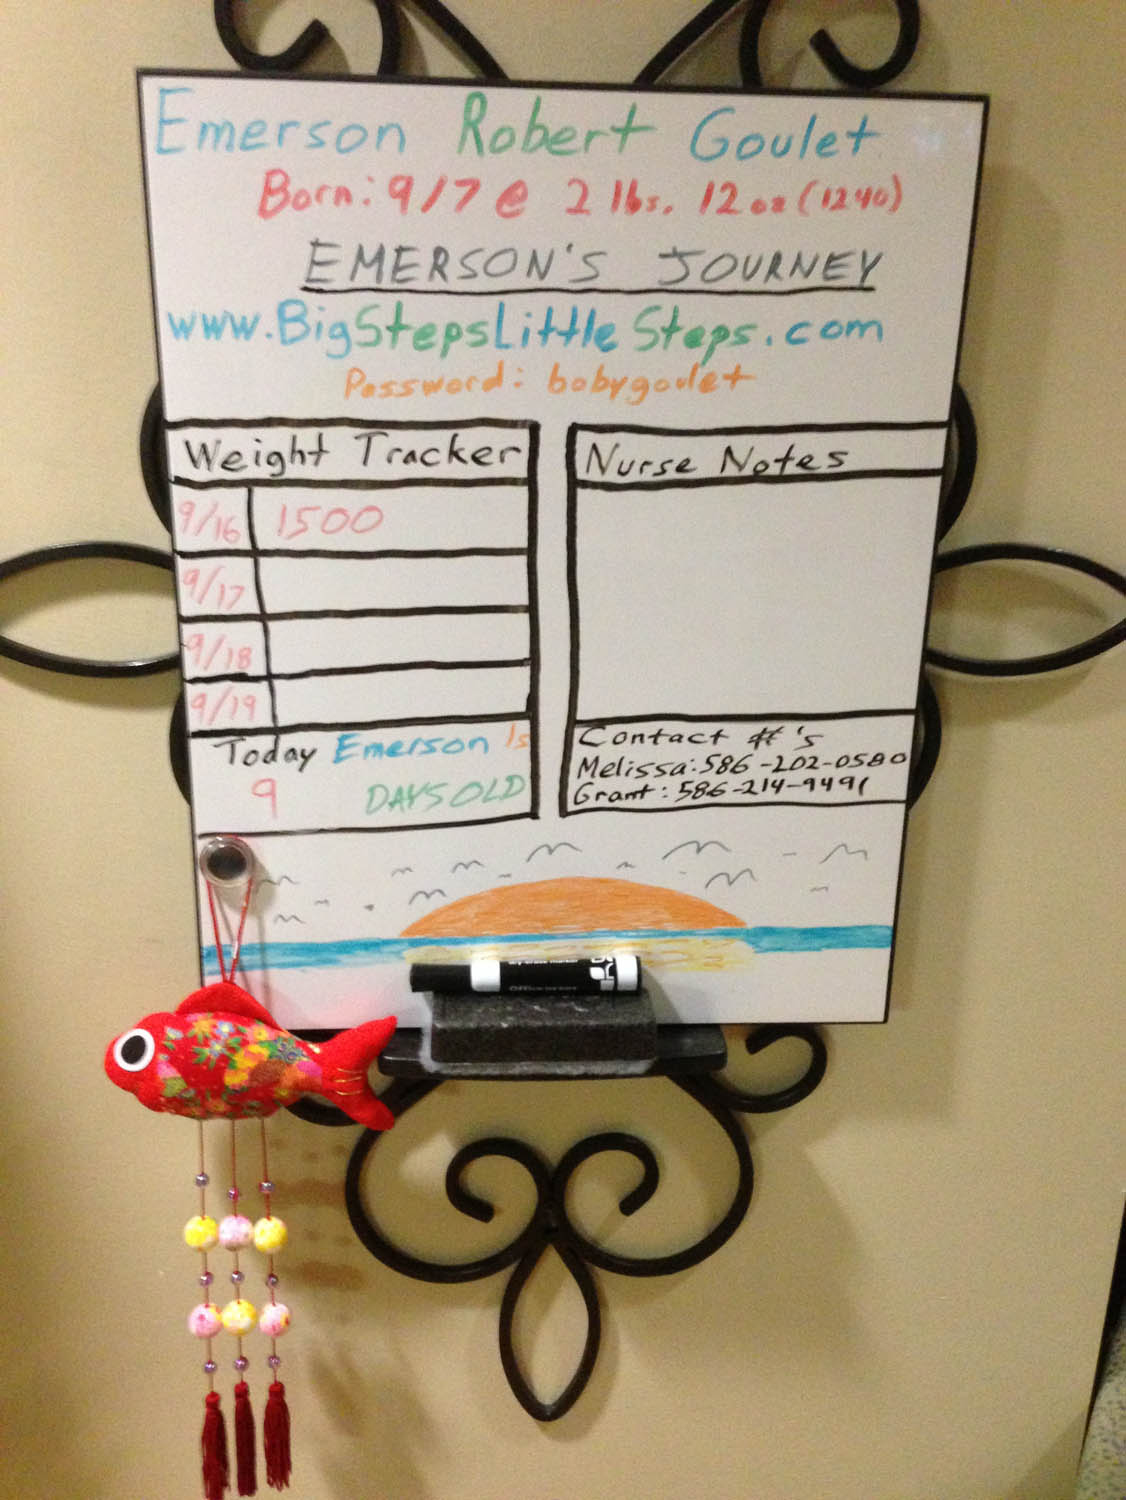 Emerson Robert Goulet
Born: 9/7 @ 2 lbs. 12 oz (1240)
EMERSON'S JOURNEY
www.BigStepsLittleSteps.com
Password: babygoulet
Weight Tracker
9/16 1500
9/17
9/18
9/19
Today Emerson Is
9 DAYS OLD
Nurse Notes
Contact #'s
Melissa: 586-202-0580
Grant: 586-214-9491